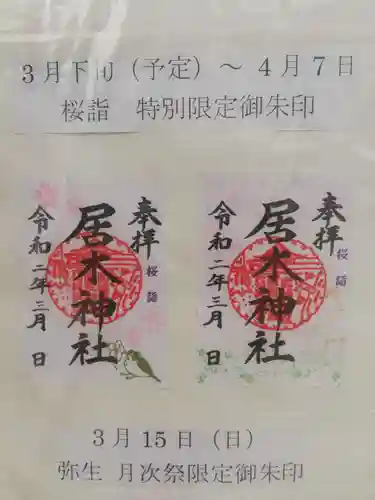 3月下旬（予定）～4月7日
桜詣 特別限定御朱印
奉拝
桜詣
居木神社
令和二年三月 日
奉拝
桜詣
居木神社
令和二年三月 日
3月15日（日）
弥生 月次祭限定御朱印